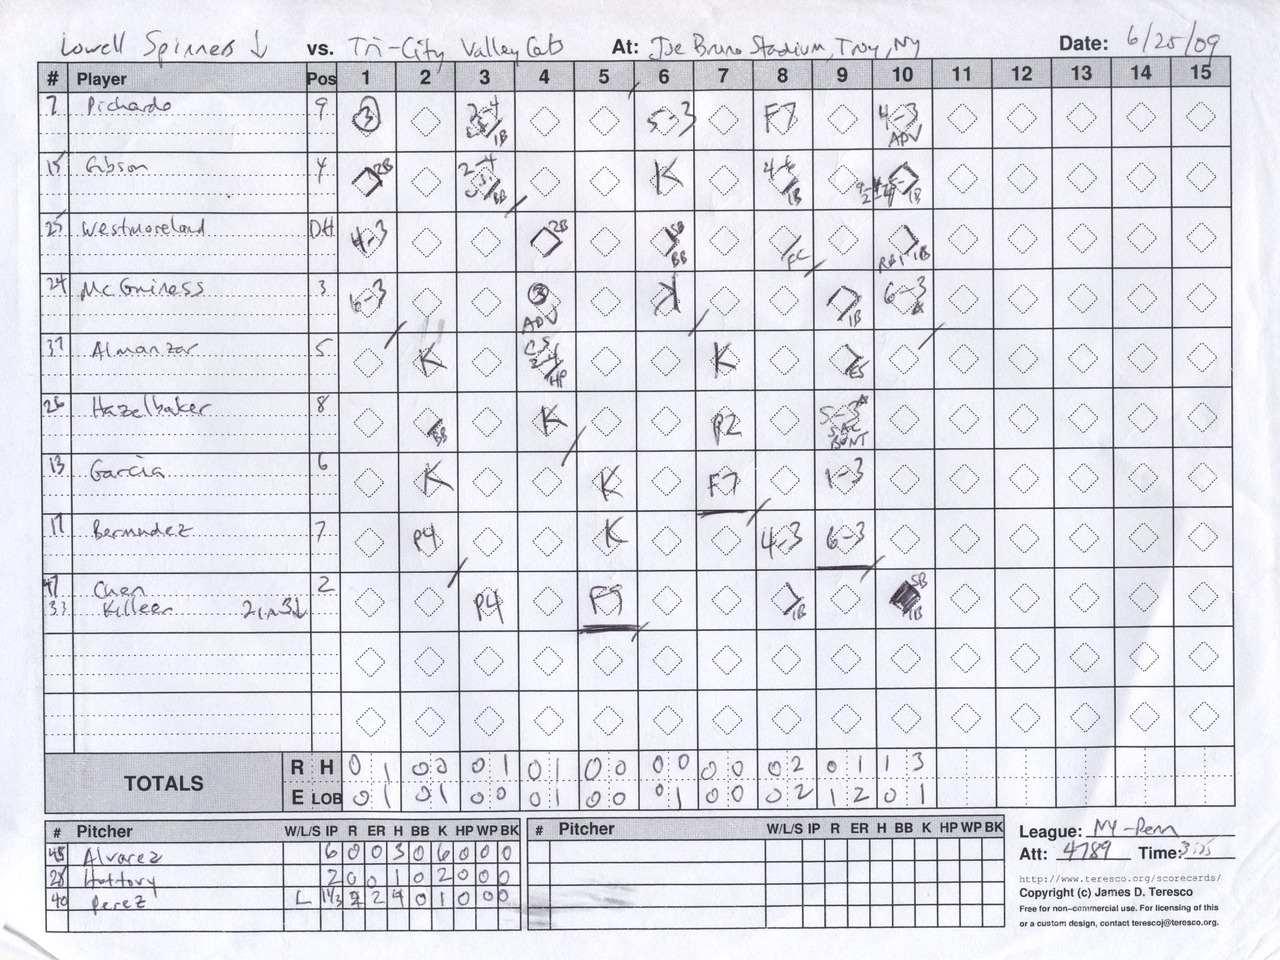 Lowell Spinners ↓ vs. Tri-City ValleyCats At: Joe Bruno Stadium, Troy, NY Date: 6/25/09
# Player Pos 1 2 3 4 5 6 7 8 9 10 11 12 13 14 15
7 Pichardo 9 3 2-4 CS 1B 5-3 F7 4-3 ADV
15 Gibson 4 2B 2-4 CS BB K 4-6 1B 1B
25 Westmoreland DH 4-3 2B SB BB FC RBI 1B
24 McGuiness 3 6-3 3 ADV K 1B 6-3
37 Almanzar 5 K CS 2-4 HP K E5
26 Hazelbaker 8 BB K P2 5-3 SAC BUNT
13 Garcia 6 K K F7 1-3
17 Bermudez 7 P4 K 4-3 6-3
47 Chen 2 P4 F9 1B SB 1B
33 Killeen 2 in 3↓
TOTALS R H 0 1 0 0 0 1 0 1 0 0 0 0 0 0 0 2 0 1 1 3
E LOB 0 1 0 1 0 0 0 1 0 0 0 1 0 0 0 2 1 2 0 1
# Pitcher W/L/S IP R ER H BB K HP WP BK # Pitcher W/L/S IP R ER H BB K HP WP BK
45 Alvarez 6 0 0 3 0 6 0 0 0
28 2 0 0 1 0 2 0 0 0
40 Perez L 1 1/3 2 2 4 0 1 0 0 0
League: NY-Penn
Att: 4789 Time: 3:05
http://www.teresco.org/scorecards/
Copyright (c) James D. Teresco
Free for non-commercial use. For licensing of this
or a custom design, contact terescoj@teresco.org.